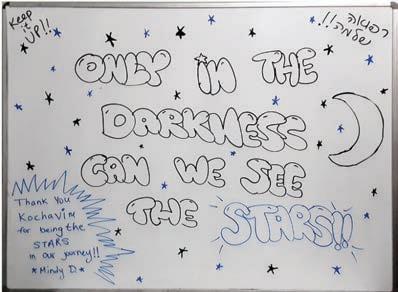 Keep
it
UP!!
רפואה
שלמה!!
ONLY IN THE
DARKNESS
CAN WE SEE
THE STARS!!
Thank You
Kochavim
for being the
STARS
in our journey!!
*Mindy D.*